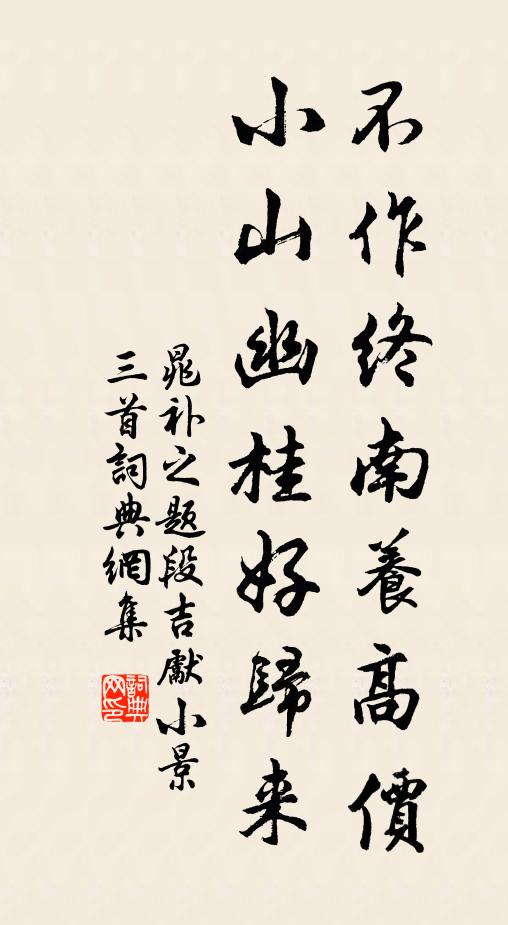 不作終南養高價
小山幽桂好歸来
晁补之题段吉獻小景
三首詞典網集
詞典网印